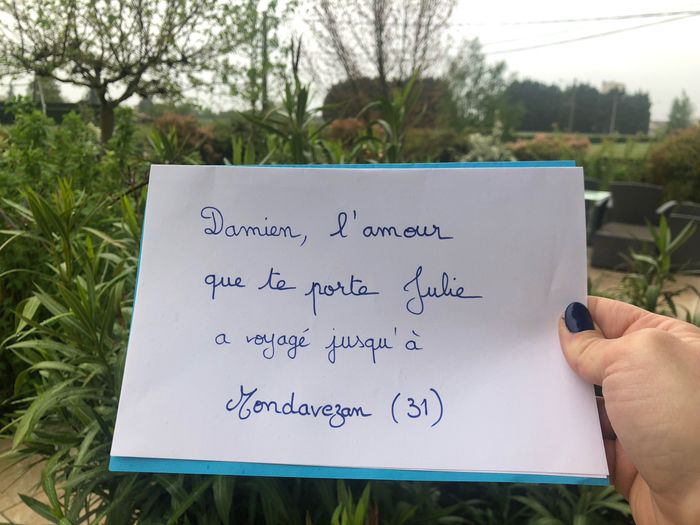 Damien, l'amour
que te porte Julie
a voyagé jusqu'à
Mondavezan (31)